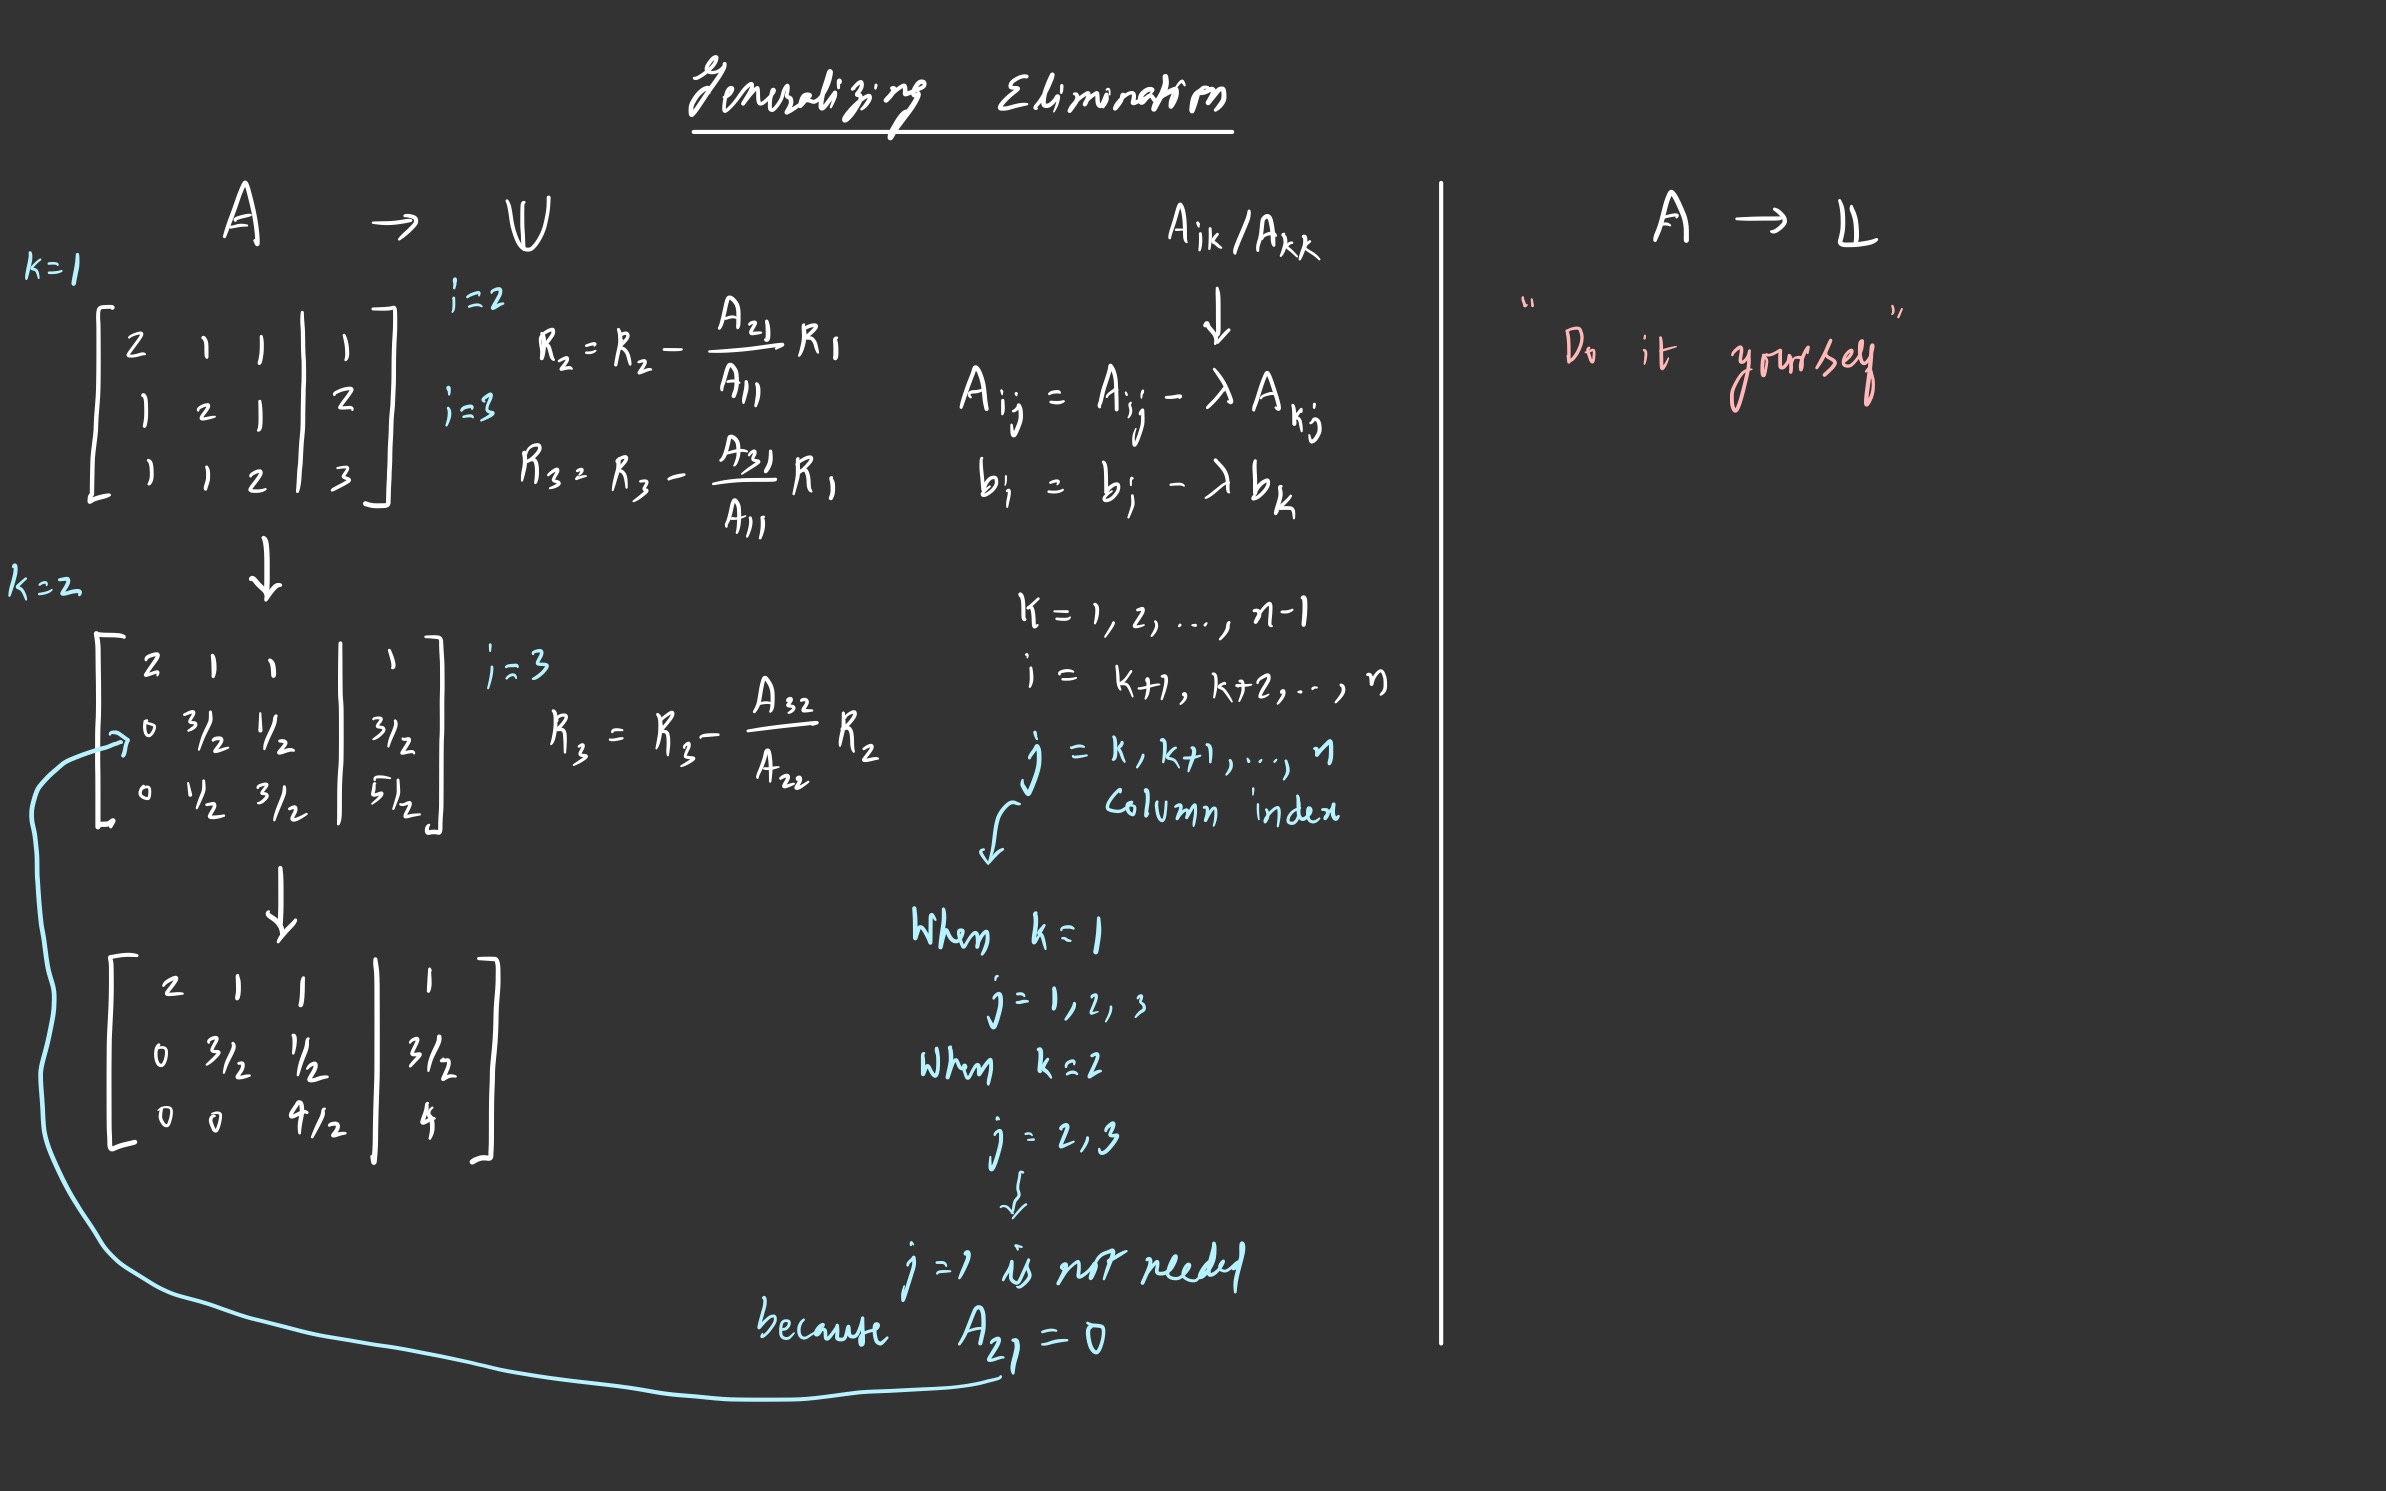 Generalizing Elimination
A → U
k=1
[ 2 1 1 | 1 ]
[ 1 2 1 | 2 ]
[ 1 1 2 | 3 ]
i=2
R₂ = R₂ − A₂₁/A₁₁ R₁
i=3
R₃ = R₃ − A₃₁/A₁₁ R₁
↓
k=2
[ 2 1 1 | 1 ]
[ 0 3/2 1/2 | 3/2 ]
[ 0 1/2 3/2 | 5/2 ]
i=3
R₃ = R₃ − A₃₂/A₂₂ R₂
↓
[ 2 1 1 | 1 ]
[ 0 3/2 1/2 | 3/2 ]
[ 0 0 4/2 | 4 ]
Aik/Akk
↓
Aij = Aij − λ Akj
bi = bi − λ bk
k = 1, 2, ..., n−1
i = k+1, k+2, ..., n
j = k, k+1, ..., n
column index
When k=1
j = 1, 2, 3
When k=2
j = 2, 3
↓
j=1 is not needed
because A₂₁ = 0
A → L
"Do it yourself"